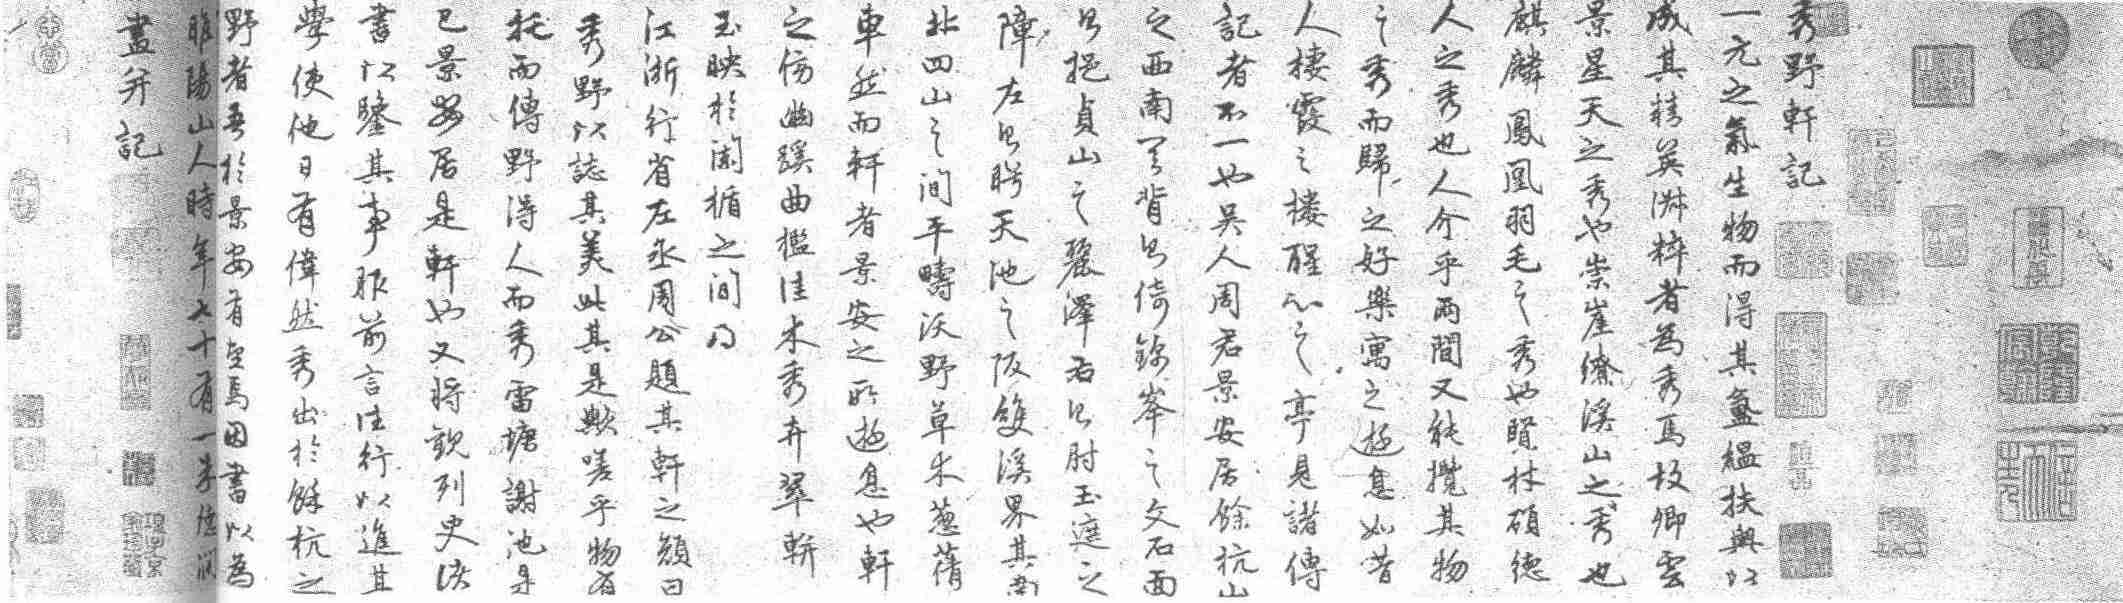 秀野軒記
一元之氣生物而得其氤氳扶輿以
成其精英淋粹者為秀焉故卿雲
景星天之秀也崇崖繚溪山之秀也
麒麟鳳凰羽毛之秀也賢材碩德
人之秀也人介乎兩間又能攬其物
之秀而歸之好樂寓之遊息如昔
人棲霞之樓醒心之亭見諸傳
記者不一也吳人周君景安居餘杭山
之西南其背則倚錦峯之文石面
則挹貞山之麗澤右則肘玉遮之
障左則盼天池之阪雙溪界其南
北四山之間平疇沃野草木葱蒨
車然而軒者景安之所遊息也軒
之傍幽蹊曲檻佳木秀卉翠軿
玉映於闌楯之間
江浙行省左丞周公題其軒之顏曰
秀野以誌其美此其是歟嗟乎物有
托而傳野得人而秀雷塘謝池是
已景安居是軒也又將觀列史法
書以鑒其事服前言往行以進其
學使他日有偉然秀出於餘杭之
野者吾於景安有望焉因書以為
睢陽山人時年七十有一朱德潤
畫并記